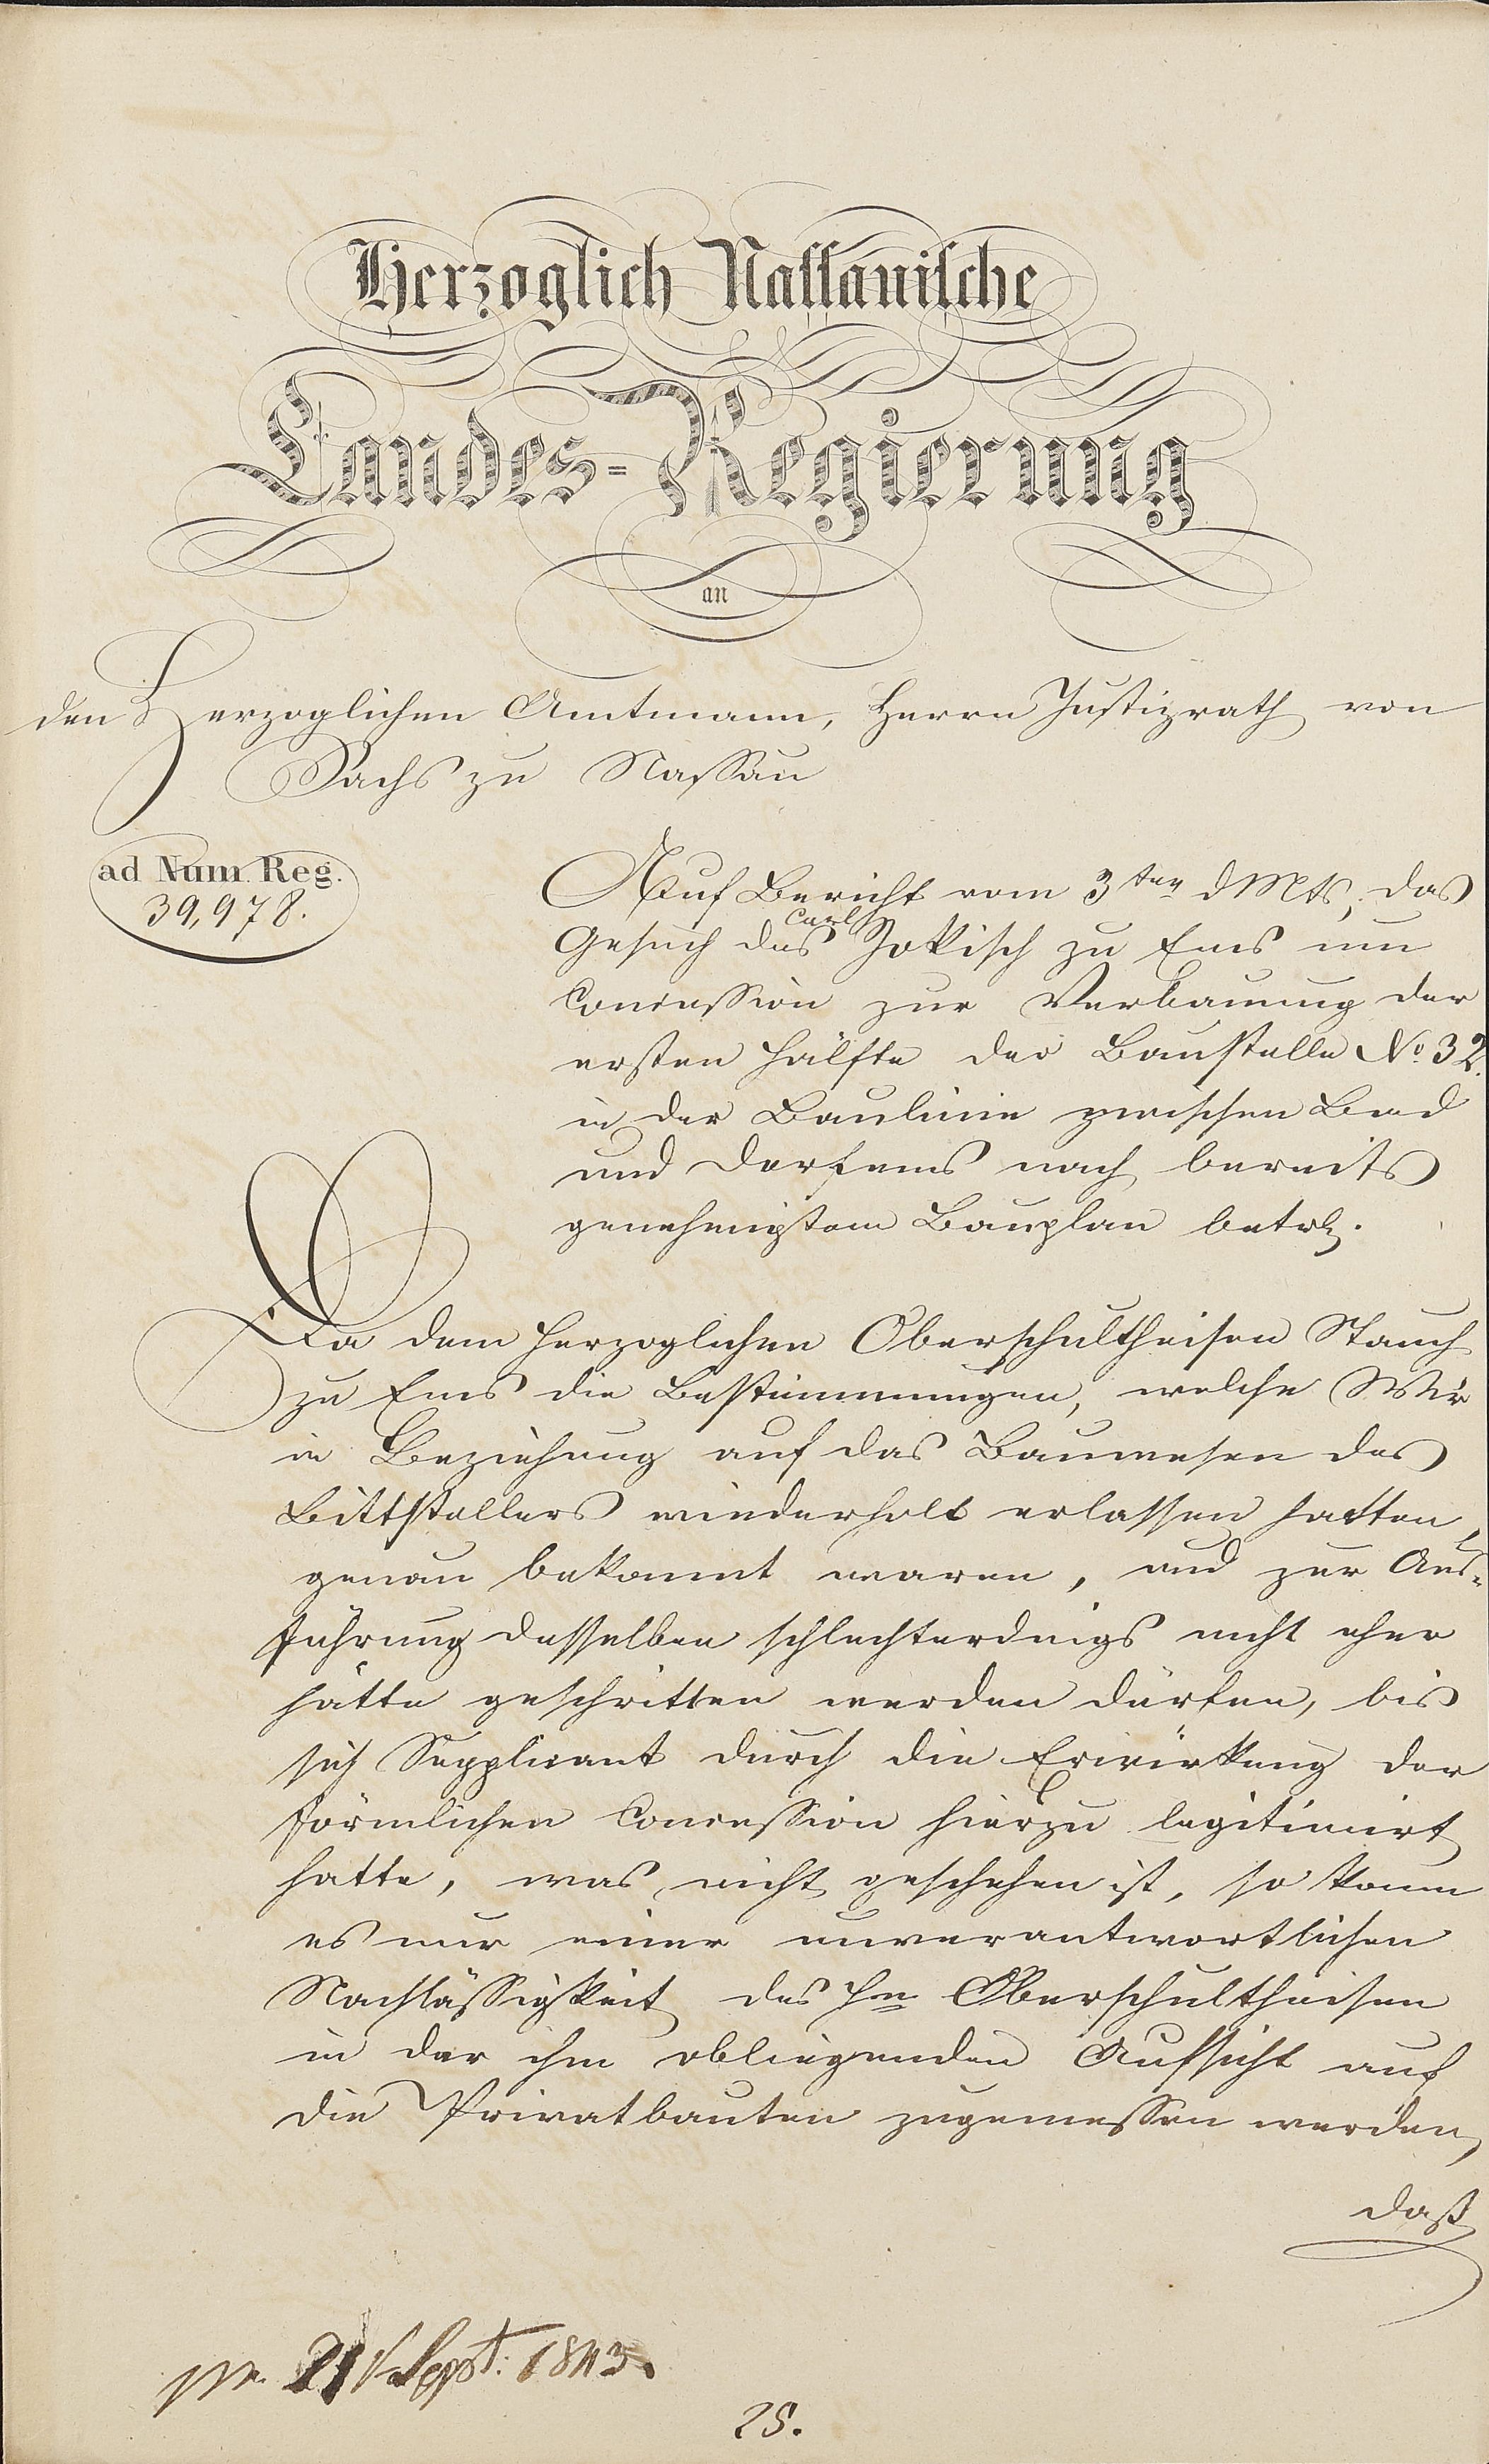 Herzoglich Nassauische
Landes-Regierung
an
den Herzoglichen Amtmann, Herrn Justizrath von
Sachs zu Nassau
ad Num. Reg.
39,978.
Auf Bericht vom 3ten d Mts, das
Gesuch des Carl Jokisch zu Ems um
Concession zur Verbauung der
ersten Hälfte der Baustelle No. 32.
in der Baulinie zwischen Bad
und Dorfems nach bereits
genehmigtem Bauplan betr.
Da dem Herzoglichen Oberschultheisen Stauch
zu Ems die Bestimmungen, welche Wir
in Beziehung auf das Bauwesen des
Bittstellers wiederholt erlassen hatten,
genau bekannt waren, und zur Aus-
führung desselben schlechterdings nicht eher
hätte geschritten werden dürfen, bis
sich Supplicant durch die Erwirkung der
förmlichen Concession hierzu legitimirt
hatte, was nicht geschehen ist, so kann
es nur einer unverantwortlichen
Nachlässigkeit des Hn Oberschultheisen
in der ihm obliegenden Aufsicht auf
die Privatbauten zugemessen werden,
daß
pr. 21 Sept. 1843.
25.